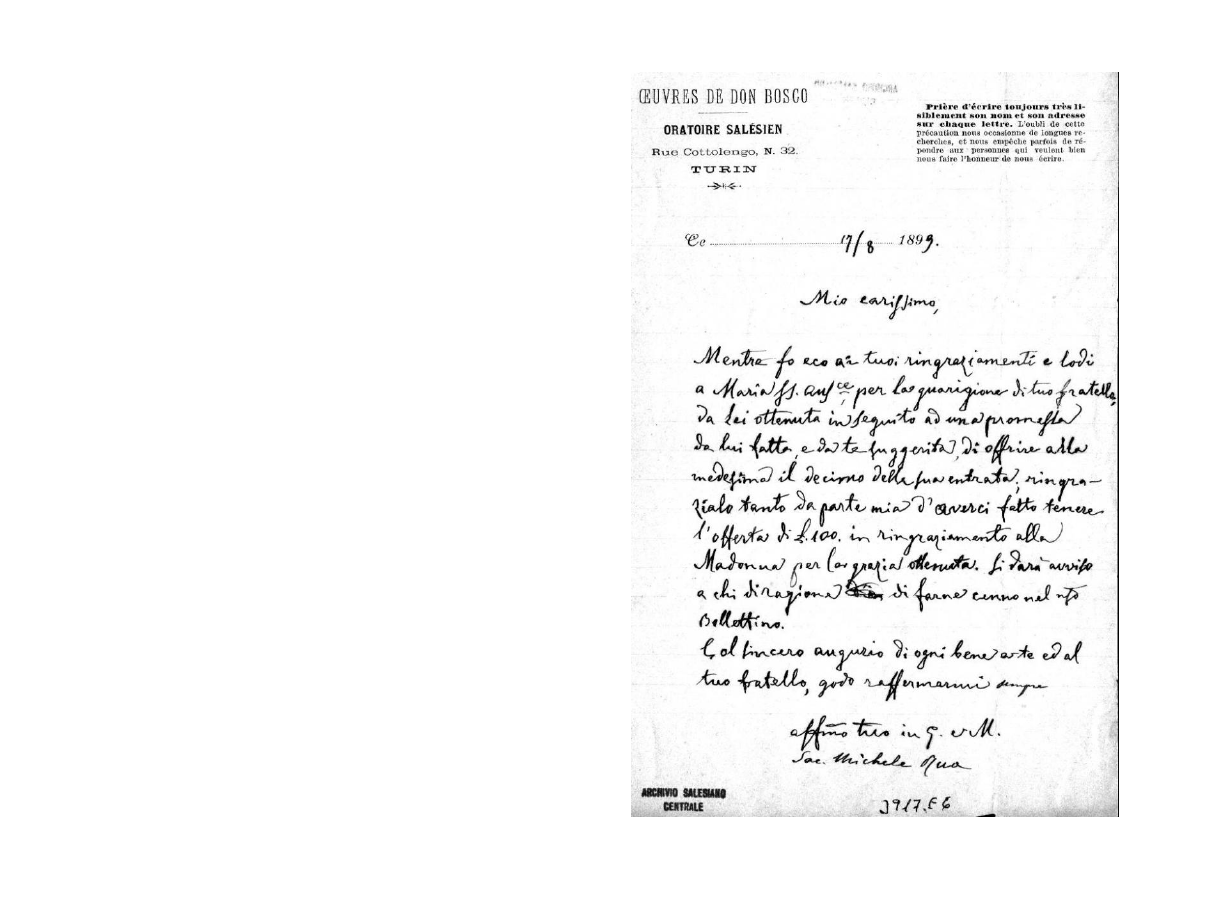 ŒUVRES DE DON BOSCO
ORATOIRE SALÉSIEN
Rue Cottolengo, N. 32.
TURIN
Prière d'écrire toujours très li-
siblement son nom et son adresse
sur chaque lettre. L'oubli de cette
précaution nous occasionne de longues re-
cherches, et nous empêche parfois de ré-
pondre aux personnes qui veulent bien
nous faire l'honneur de nous écrire.
Ce 17/8 1899.
Mio carissimo,
Mentre fo eco ai tuoi ringraziamenti e lodi
a Maria SS. Aus.ce per la guarigione di tuo fratello,
da Lei ottenuta in seguito ad una promessa
da lui fatta, e da te suggerita, di offrire alla
medesima il decimo della sua entrata, ringra-
zialo tanto da parte mia d'averci fatto tenere
l'offerta di £.100. in ringraziamento alla
Madonna per la grazia ottenuta. Si darà avviso
a chi di ragione di farne cenno nel nro
Bollettino.
Col sincero augurio di ogni bene a te ed al
tuo fratello, godo raffermarmi sempre
affmo tuo in G. e M.
Sac. Michele Rua
ARCHIVIO SALESIANO
CENTRALE
3917.E6